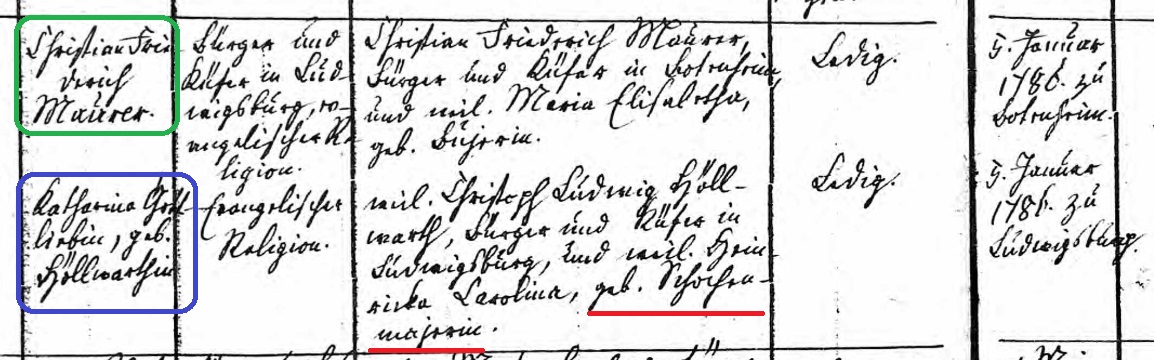 Christian Frie-
derich
Maürer.
Bürger und
Küfer in Lud-
wigsburg, ev-
angelischer Re-
ligion.
Christian Friederich Maürer,
Bürger und Küfer in Botenheim,
und weil. Maria Elisabetha,
geb. Büjerin.
Ledig.
5. Januar
1786. zu
Botenheim.
Katharina Gott-
liebin, geb.
Höllwarthin
Evangelischer
Religion.
weil. Christoph Ludwig Höll-
warth, Bürger und Küfer in
Ludwigsburg, und weil. Hein-
ricka Carolina, geb. Schochen-
majerin.
Ledig.
5. Januar
1786. zu
Ludwigsburg.